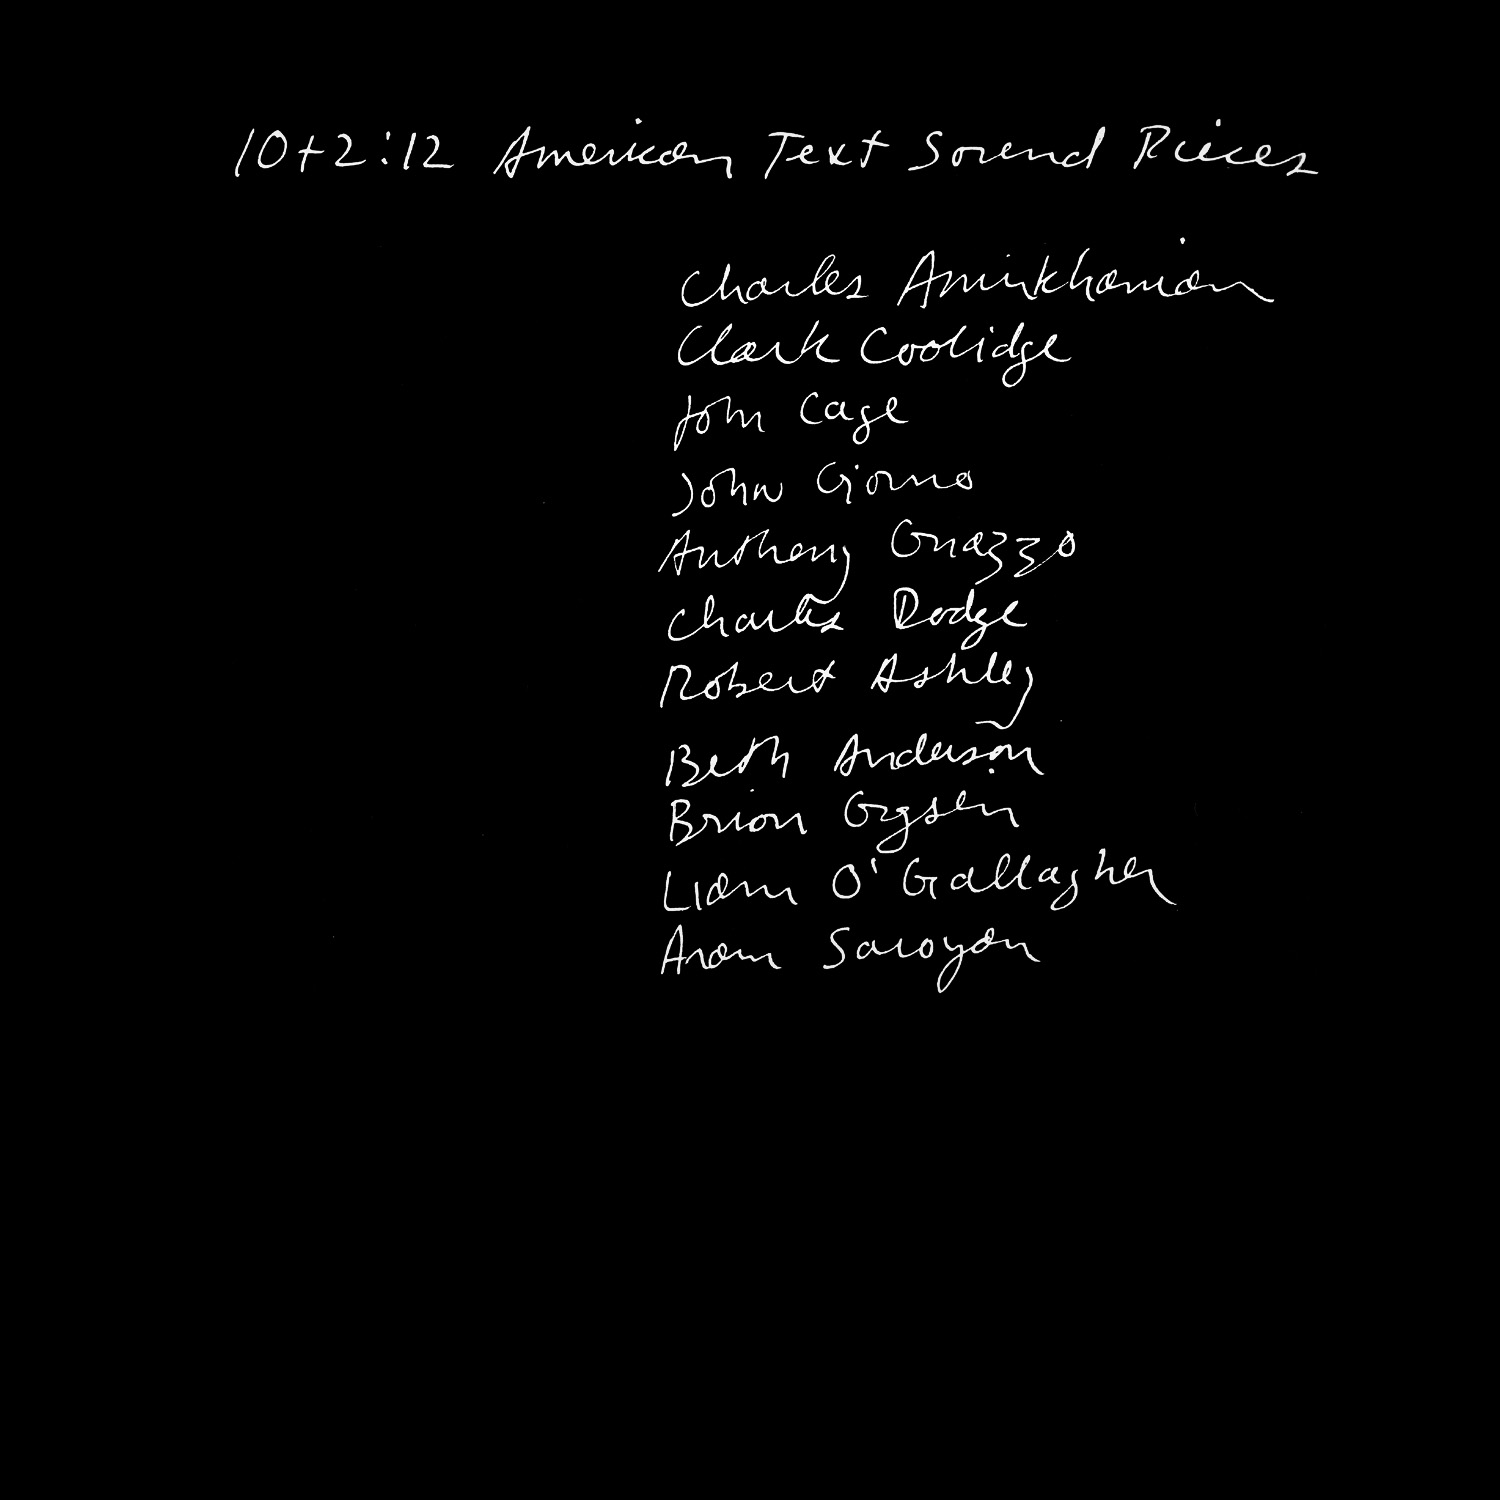 10+2:12 American Text Sound Pieces
Charles Amirkhanian
Clark Coolidge
John Cage
John Giorno
Anthony Gnazzo
Charles Dodge
Robert Ashley
Beth Anderson
Brion Gysin
Liam O'Gallagher
Aram Saroyan